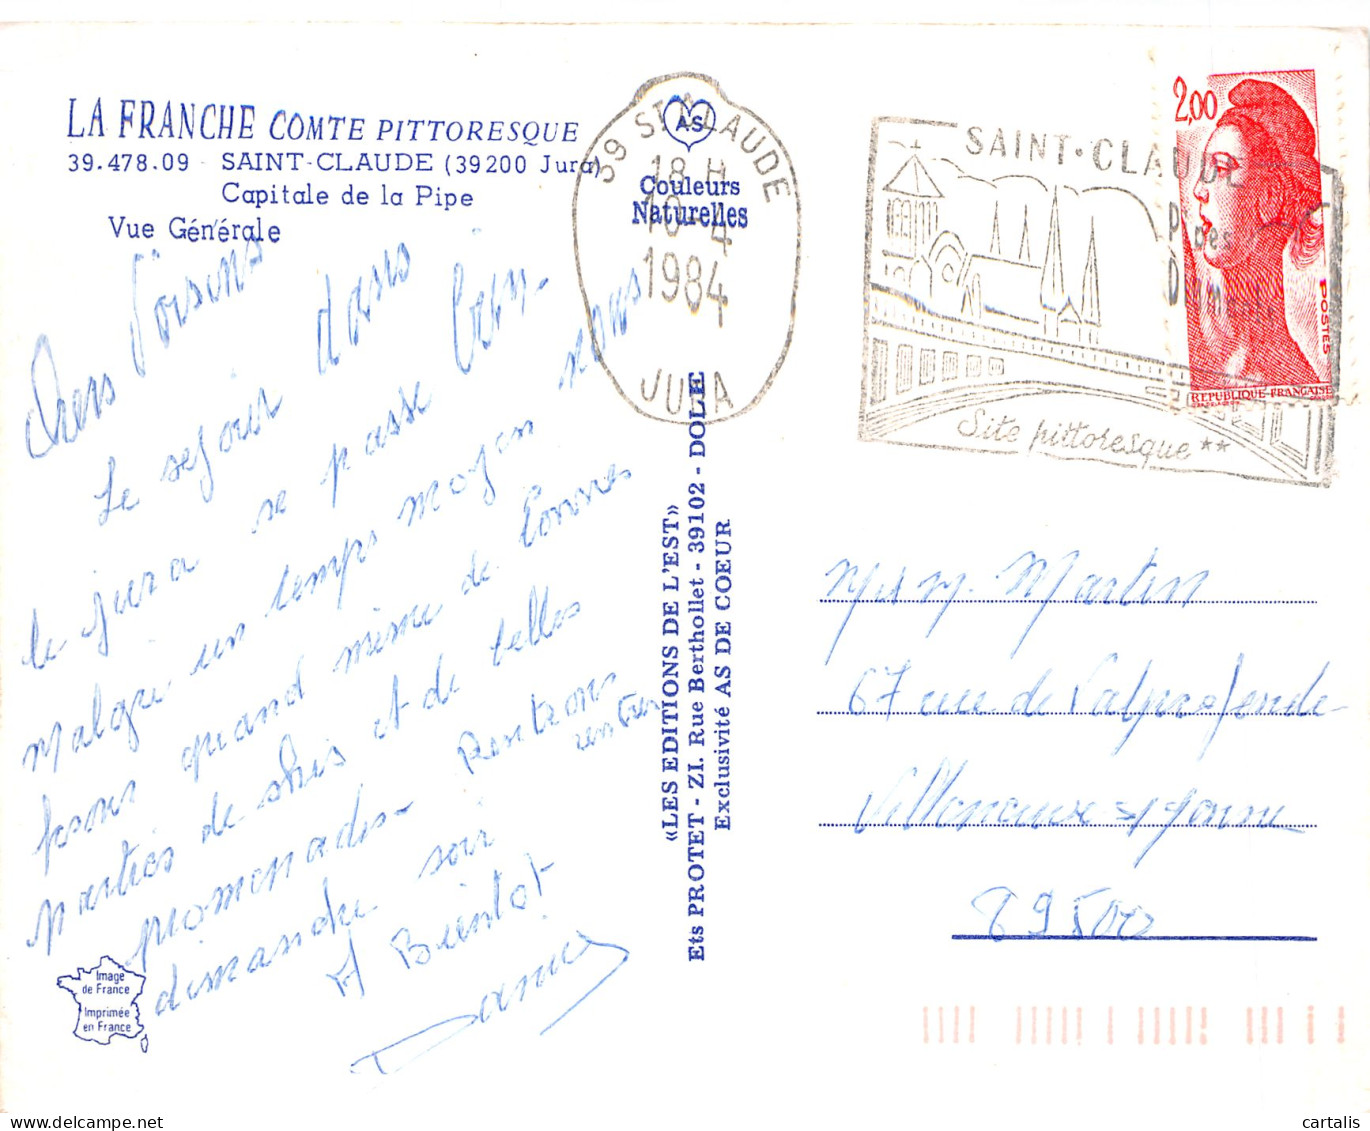 LA FRANCHE COMTE PITTORESQUE
39.478.09 - SAINT-CLAUDE (39200 Jura)
Capitale de la Pipe
Vue Générale
Chers Voisins
Le sejour dans
le jura se passe bien.
malgré un temps moyen nous
fesons quand même de bonnes
parties de skis et de belles
promenades. Rentrons
dimanche soir
A Bientot
AS
Couleurs
Naturelles
39 ST CLAUDE
18 H
10-4
1984
JURA
«LES EDITIONS DE L'EST»
Ets PROTET - ZI. Rue Berthollet - 39102 - DOLE
Exclusivité AS DE COEUR
SAINT-CLAUDE
Site pittoresque **
2,00
POSTES
REPUBLIQUE FRANÇAISE
M. Martin
67 rue de Valprofonde
Villeneuve s/ Yonne
89500
Image
de France
Imprimée
en France
delcampe.net
cartalis